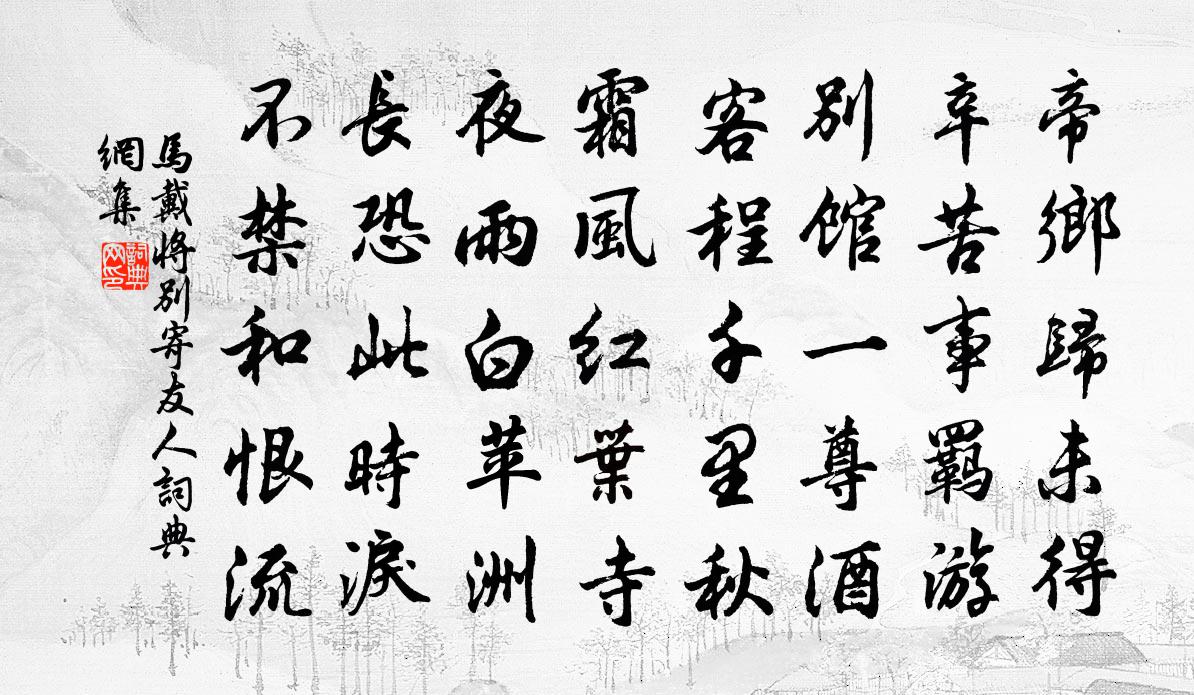 帝鄉歸未得
辛苦事羇游
別館一尊酒
客程千里秋
霜風紅葉寺
夜雨白苹洲
長恐此時淚
不禁和恨流
馬戴將別寄友人詞典
網集
詞典
网印